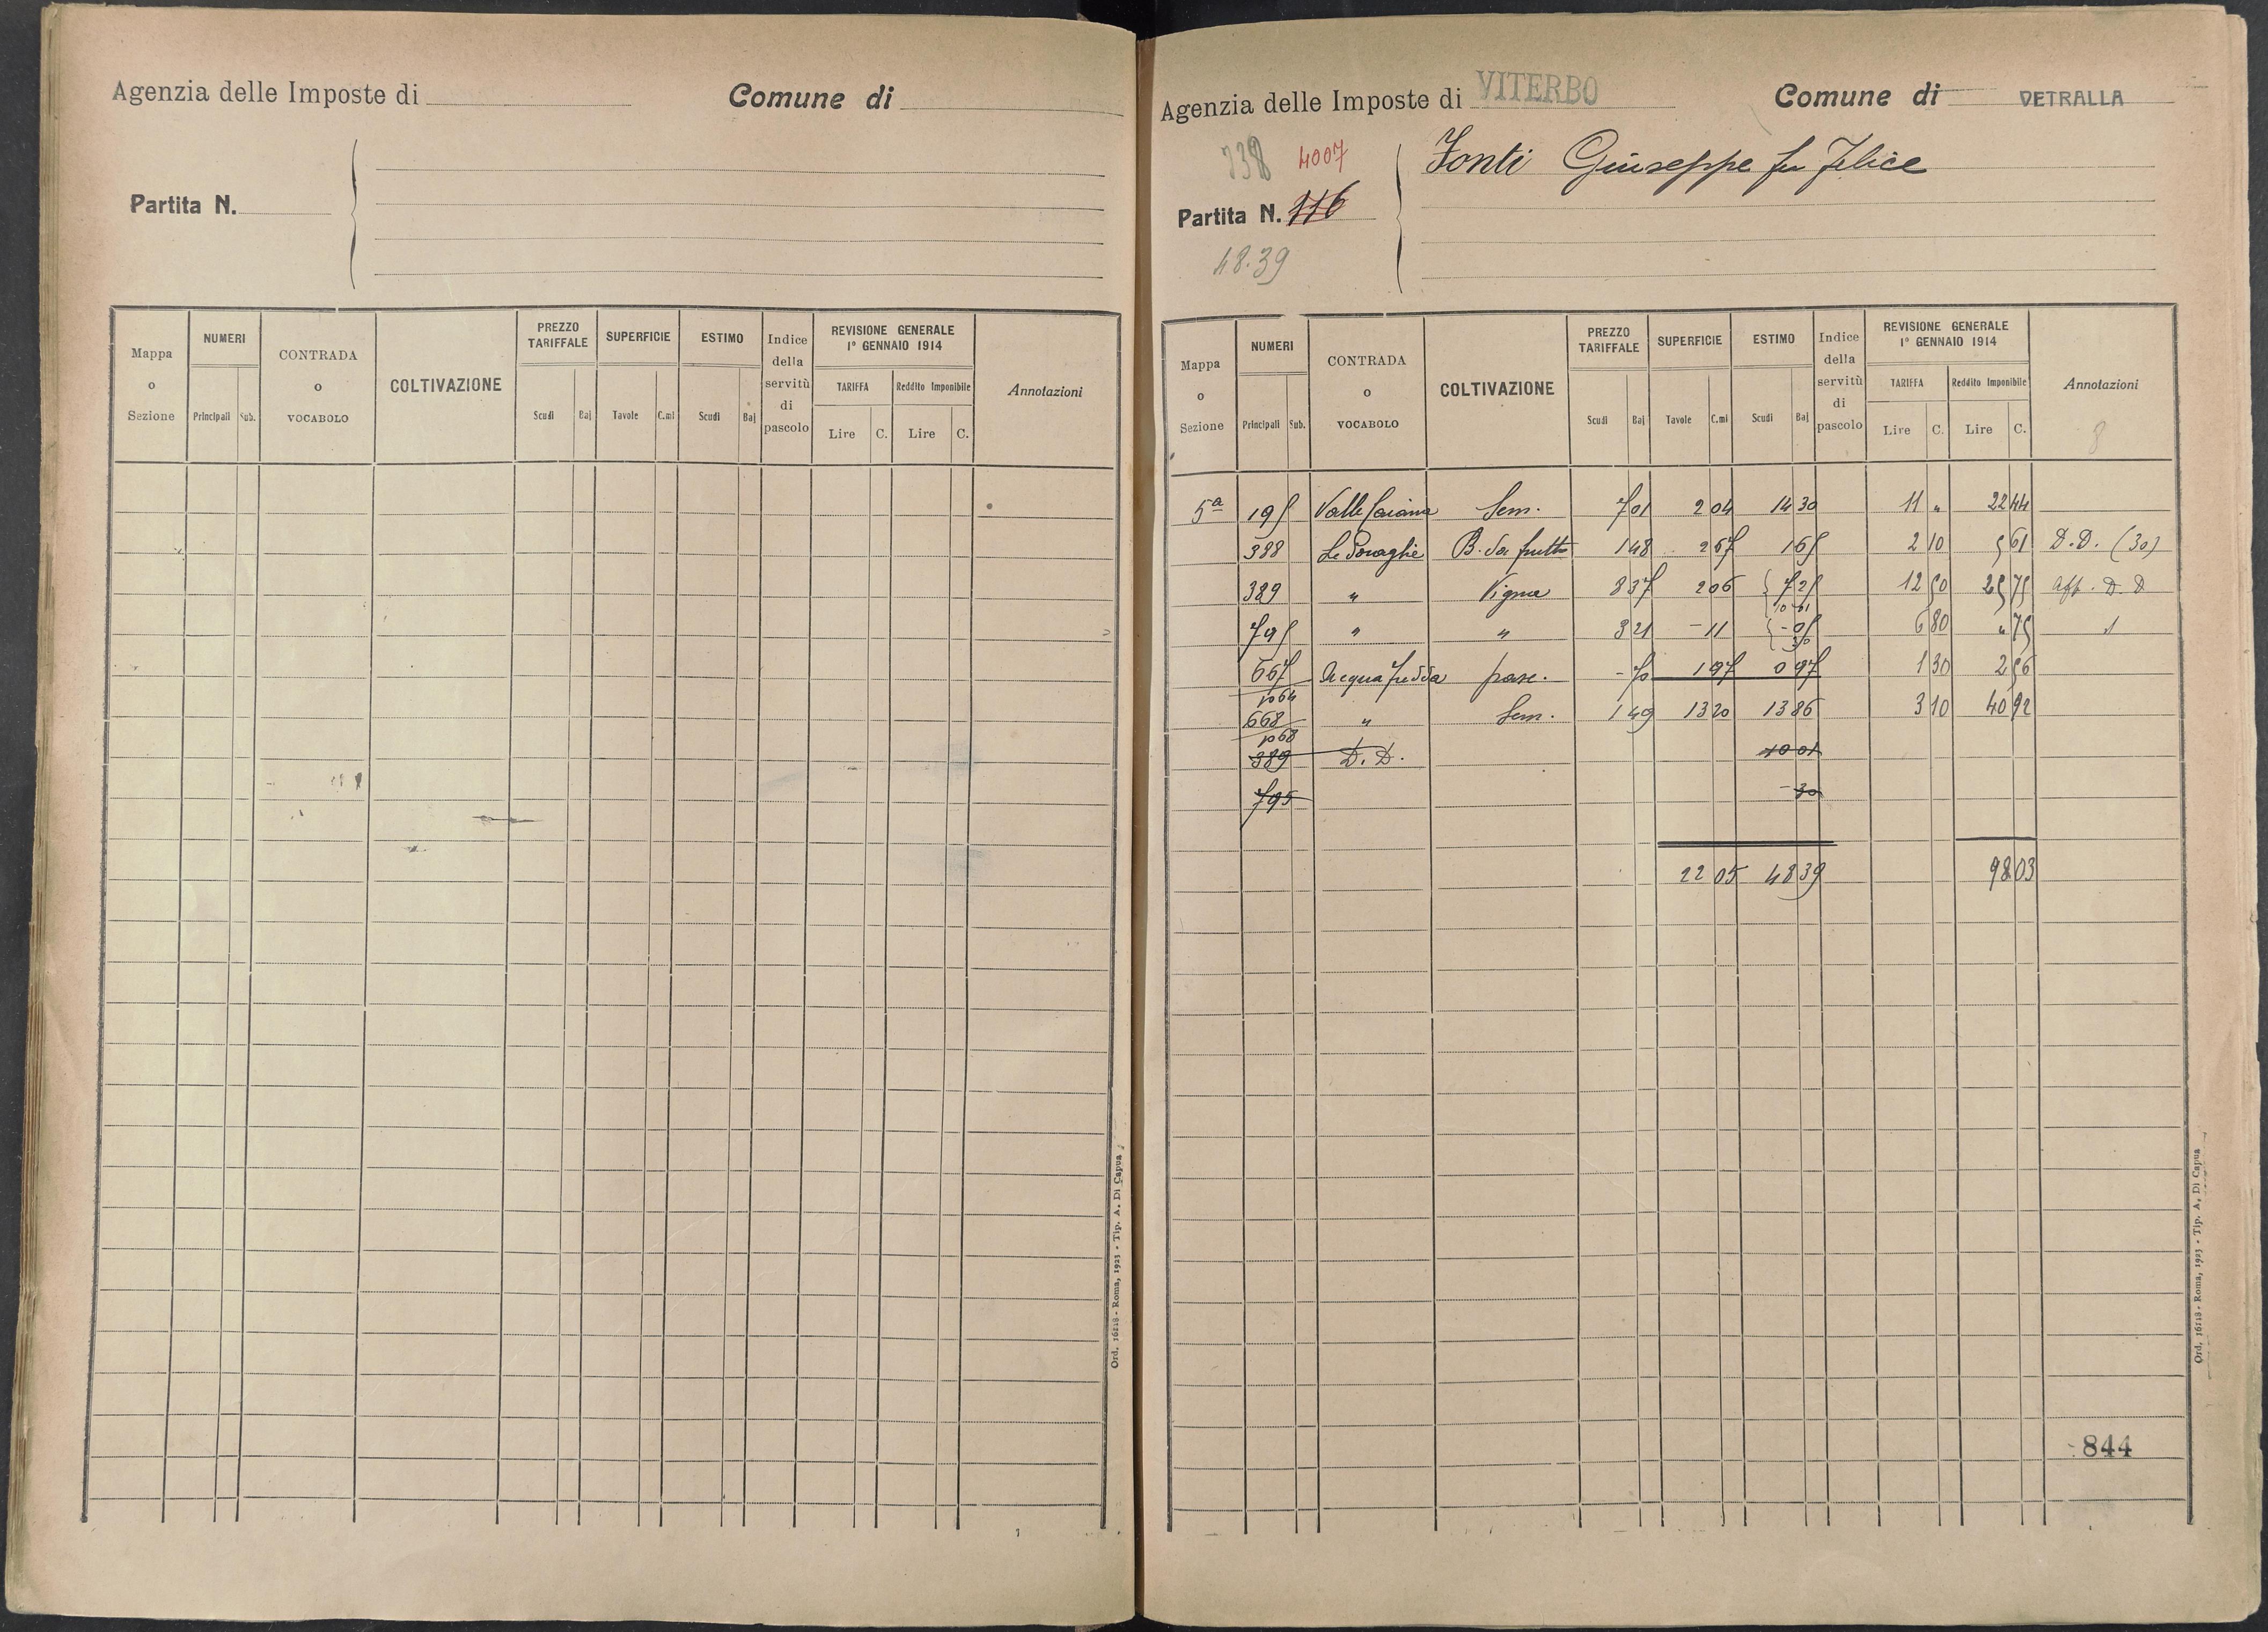 Agenzia delle Imposte di
Comune di
Partita N.
Mappa o Sezione
NUMERI
Principali Sub.
CONTRADA o VOCABOLO
COLTIVAZIONE
PREZZO TARIFFALE
Scudi Baj
SUPERFICIE
Tavole C.mi
ESTIMO
Scudi Baj
Indice della servitù di pascolo
REVISIONE GENERALE
1° GENNAIO 1914
TARIFFA Reddito Imponibile
Lire C. Lire C.
Annotazioni
Ord. 16118 - Roma, 1923 - Tip. A. Di Capua
Agenzia delle Imposte di VITERBO
Comune di VETRALLA
738 4007
Partita N. 116
48.39
Fonti Giuseppe fu Felice
Mappa o Sezione
NUMERI
Principali Sub.
CONTRADA o VOCABOLO
COLTIVAZIONE
PREZZO TARIFFALE
Scudi Baj
SUPERFICIE
Tavole C.mi
ESTIMO
Scudi Baj
Indice della servitù di pascolo
REVISIONE GENERALE
1° GENNAIO 1914
TARIFFA Reddito Imponibile
Lire C. Lire C.
Annotazioni
8
5a 195 Valle Sem. 7 01 2 04 14 30 11 " 22 44
388 Le B. da frutto 1 48 2 67 1 65 2 10 5 61 D.D. (30)
389 " Vigna 8 37 2 06 7 25 12 50 25 75 Aff. D.D
10 01
795 " " 3 21 - 11 - 05 6 80 " 75
30
667 Acqua fredda pasc. - 70 1 97 0 97 1 30 2 56
1064
668 " Sem. 1 49 13 20 13 86 3 10 40 92
1068
389 D.D. 10 01
795 - 30
22 05 48 39 98 03
844
Ord. 16118 - Roma, 1923 - Tip. A. Di Capua